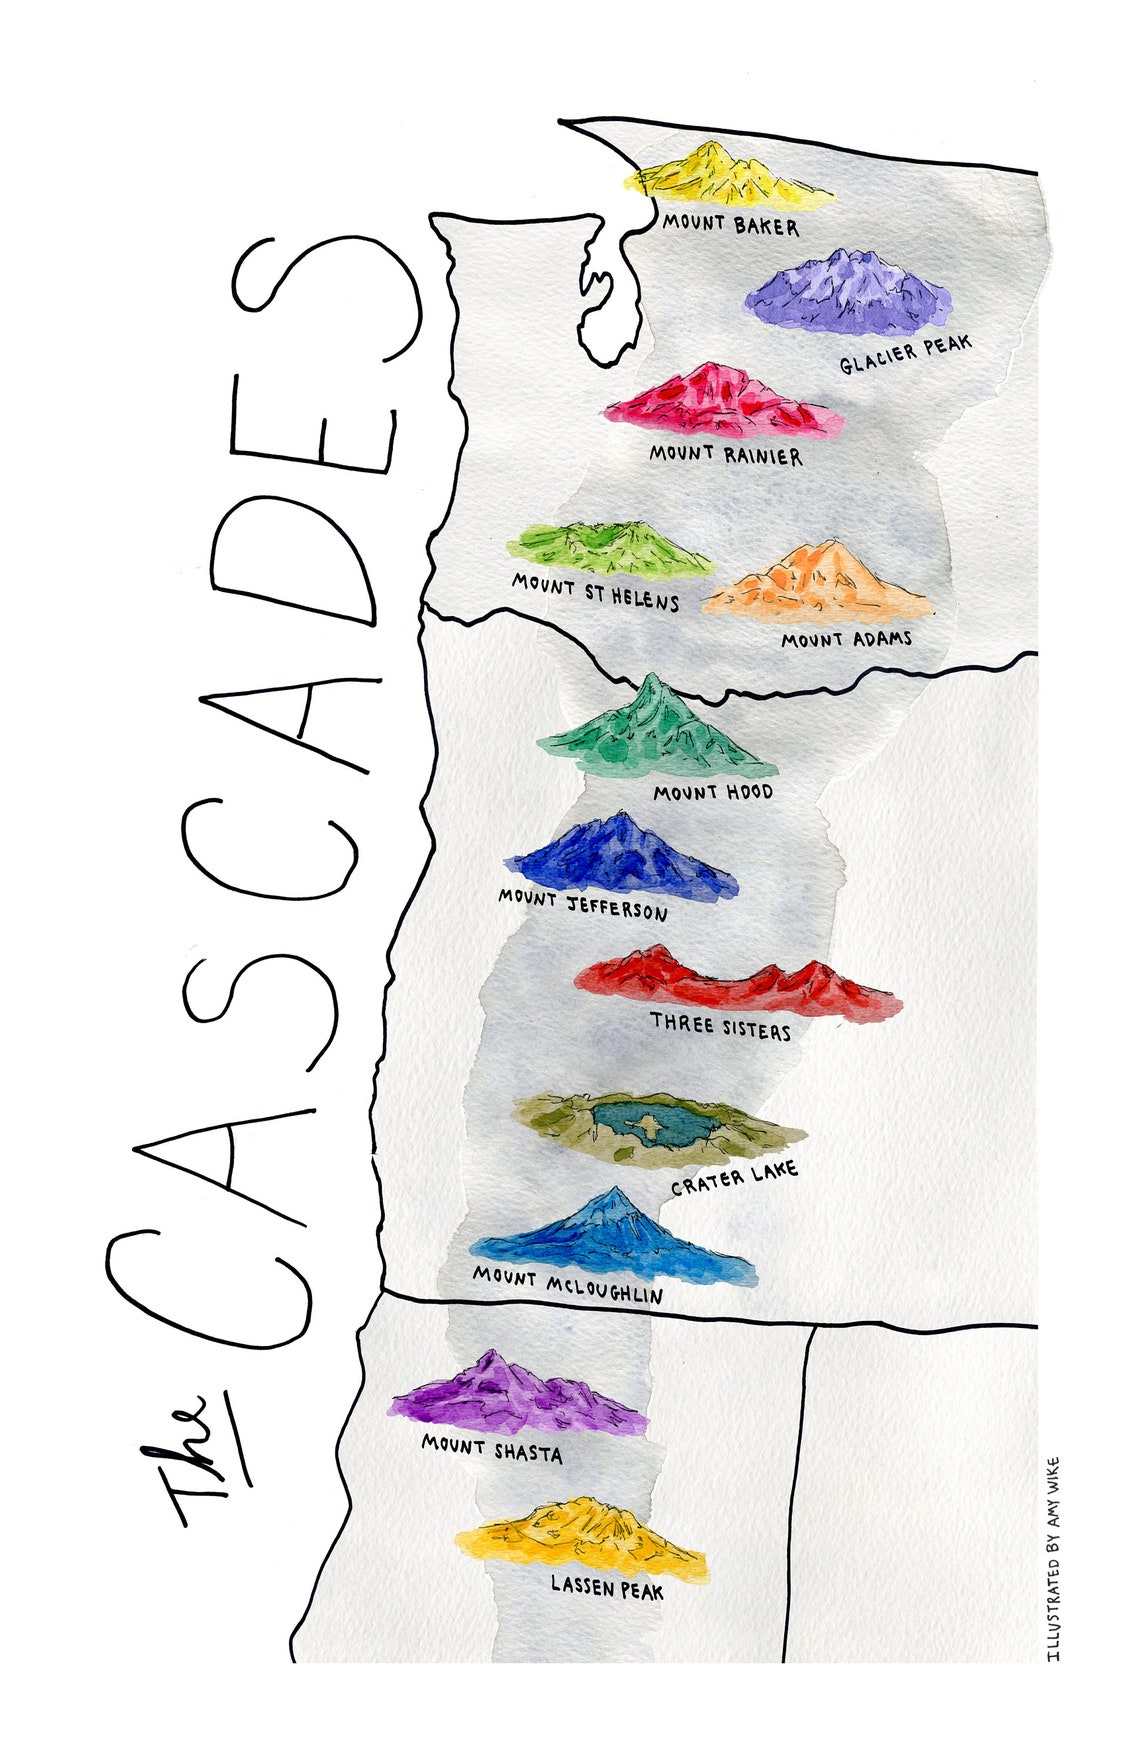 The CASCADES
MOUNT BAKER
GLACIER PEAK
MOUNT RAINIER
MOUNT ST HELENS
MOUNT ADAMS
MOUNT HOOD
MOUNT JEFFERSON
THREE SISTERS
CRATER LAKE
MOUNT MCLOUGHLIN
MOUNT SHASTA
LASSEN PEAK
ILLUSTRATED BY AMY WIKE